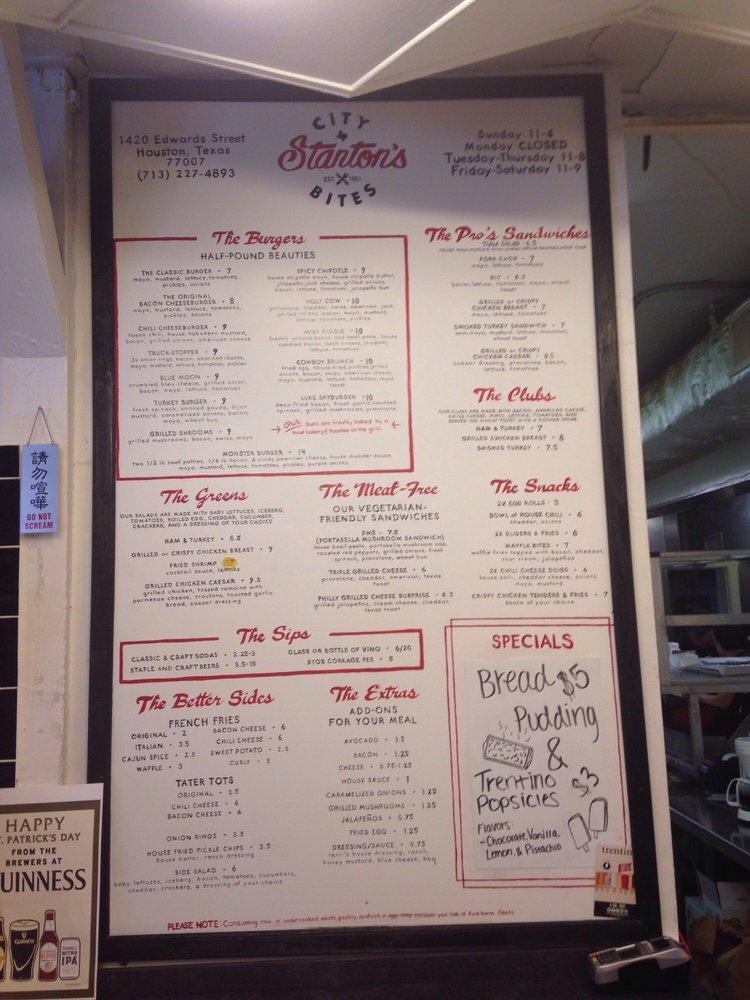 1420 Edwards Street
Houston, Texas
77007
(713) 227-4893
CITY
Stanton's
EST. 1961
BITES
Sunday 11-4
Monday CLOSED
Tuesday-Thursday 11-8
Friday-Saturday 11-9
The Burgers
HALF-POUND BEAUTIES
THE CLASSIC BURGER • 7
mayo, mustard, lettuce, tomatoes,
pickles, onions
THE ORIGINAL
BACON CHEESEBURGER • 8
mayo, mustard, lettuce, tomatoes,
pickles, onions
CHILI CHEESEBURGER • 9
house chili, house habanero mustard,
bacon, grilled onions, american cheese
TRUCK-STOPPER • 9
2x onion rings, bacon, american cheese,
mayo, mustard, lettuce, tomatoes, pickles
BLUE MOON • 9
crumbled bleu cheese, grilled onion,
bacon, mayo, lettuce, tomatoes
TURKEY BURGER • 9
fresh spinach, smoked gouda, dijon
mustard, caramelized onions, bacon,
mayo, wheat bun
GRILLED SHROOMS • 9
grilled mushrooms, bacon, swiss, mayo
SPICY CHIPOTLE • 9
house chipotle mayo, house chipotle butter,
jalapeño jack cheese, grilled onions,
bacon, lettuce, tomatoes, jalapeño bun
HOLY COW • 10
provolone, cheddar, swiss, american, jack,
grilled onions, bacon, mayo, mustard,
lettuce, tomatoes, pickles
MISS PIGGIE • 10
freshly ground bacon and beef patty, house
candied bacon, hash browns, cheddar,
lettuce, tomatoes
COWBOY BRUNCH • 10
fried egg, house fried pickles, grilled
onions, bacon, swiss, american cheese,
mayo, mustard, lettuce, tomatoes, texas
toast
LUKE SKYBURGER • 10
deep-fried bacon, fresh garlic, sautéed
spinach, grilled mushrooms, provolone
Our buns are freshly baked by a
local bakery & toasted on the grill.
MONSTER BURGER • 14
two 1/2 lb beef patties, 1/4 lb bacon, 4 slices american cheese, house monster sauce,
mayo, mustard, lettuce, tomatoes, pickles, purple onions
The Pro's Sandwiches
TUNA SALAD • 6.5
PORK CHOP • 7
mayo, lettuce, tomatoes
BLT • 6.5
bacon, lettuce, tomatoes, mayo, wheat
toast
GRILLED or CRISPY
CHICKEN BREAST • 7
mayo, lettuce, tomatoes
SMOKED TURKEY SANDWICH • 7
mayo, mustard, lettuce, tomatoes,
wheat toast
GRILLED or CRISPY
CHICKEN CAESAR • 8.5
caesar dressing, provolone, bacon,
lettuce, tomatoes
The Clubs
OUR CLUBS ARE MADE WITH BACON, AMERICAN CHEESE,
SWISS CHEESE, MAYO, LETTUCE, TOMATOES, AND
SERVED ON WHEAT TOAST WITH A PICKLE SPEAR
HAM & TURKEY • 7
GRILLED CHICKEN BREAST • 8
SMOKED TURKEY • 7.5
The Greens
OUR SALADS ARE MADE WITH BABY LETTUCES, ICEBERG,
TOMATOES, BOILED EGG, CHEDDAR, CUCUMBER,
CRACKERS, AND A DRESSING OF YOUR CHOICE
HAM & TURKEY • 8.5
GRILLED or CRISPY CHICKEN BREAST • 9
FRIED SHRIMP
cocktail sauce, lemons
GRILLED CHICKEN CAESAR • 9.5
grilled chicken, tossed romaine with
parmesan cheese, croutons, toasted garlic
bread, caesar dressing
The Meat-Free
OUR VEGETARIAN-
FRIENDLY SANDWICHES
PMS • 7.5
(PORTABELLA MUSHROOM SANDWICH)
house basil pesto, portobello mushroom cap,
roasted red peppers, grilled onions, fresh
spinach, provolone, wheat bun
TRIPLE GRILLED CHEESE • 6
provolone, cheddar, american, texas
toast
PHILLY GRILLED CHEESE SURPRISE • 6.5
grilled jalapeños, cream cheese, cheddar,
texas toast
The Snacks
2X EGG ROLLS • 3
BOWL of HOUSE CHILI • 6
cheddar, onions
2X SLIDERS & FRIES • 8
WAFFLE BITES • 7
waffle fries topped with bacon, cheddar,
sour cream, jalapeños
2X CHILI CHEESE DOGS • 6
house chili, cheddar cheese, onions,
mayo, mustard
CRISPY CHICKEN TENDERS & FRIES • 7
sauce of your choice
The Sips
CLASSIC & CRAFT SODAS • 2.25-3
STAPLE AND CRAFT BEERS • 3.5-15
GLASS OR BOTTLE OF VINO • 6/20
BYOB CORKAGE FEE • 5
The Better Sides
FRENCH FRIES
ORIGINAL • 2
ITALIAN • 3.5
CAJUN SPICE • 2.5
WAFFLE • 3
BACON CHEESE • 6
CHILI CHEESE • 6
SWEET POTATO • 2.5
CURLY • 3
TATER TOTS
ORIGINAL • 2.5
CHILI CHEESE • 6
BACON CHEESE • 6
ONION RINGS • 3.5
HOUSE FRIED PICKLE CHIPS • 3.5
house batter, ranch dressing
SIDE SALAD • 6
baby lettuces, iceberg, bacon, tomatoes, cucumbers,
cheddar, crackers, a dressing of your choice
The Extras
ADD-ONS
FOR YOUR MEAL
AVOCADO • 1.5
BACON • 1.25
CHEESE • 0.75-1.25
HOUSE SAUCE • 1
CARAMELIZED ONIONS • 1.25
GRILLED MUSHROOMS • 1.25
JALAPEÑOS • 0.75
FRIED EGG • 1.25
DRESSING/SAUCE • 0.75
terri's house dressing, ranch,
honey mustard, blue cheese, bbq
SPECIALS
Bread $5
Pudding
&
Trentino $3
Popsicles
Flavors:
- Chocolate, Vanilla
Lemon, & Pistachio
trentino
PLEASE NOTE: Consuming raw or undercooked meats, poultry, seafood or eggs may increase your risk of food borne illness.
請勿喧嘩
DO NOT
SCREAM
HAPPY
T. PATRICK'S DAY
FROM THE
BREWERS AT
UINNESS
GUINNESS
NITRO
IPA